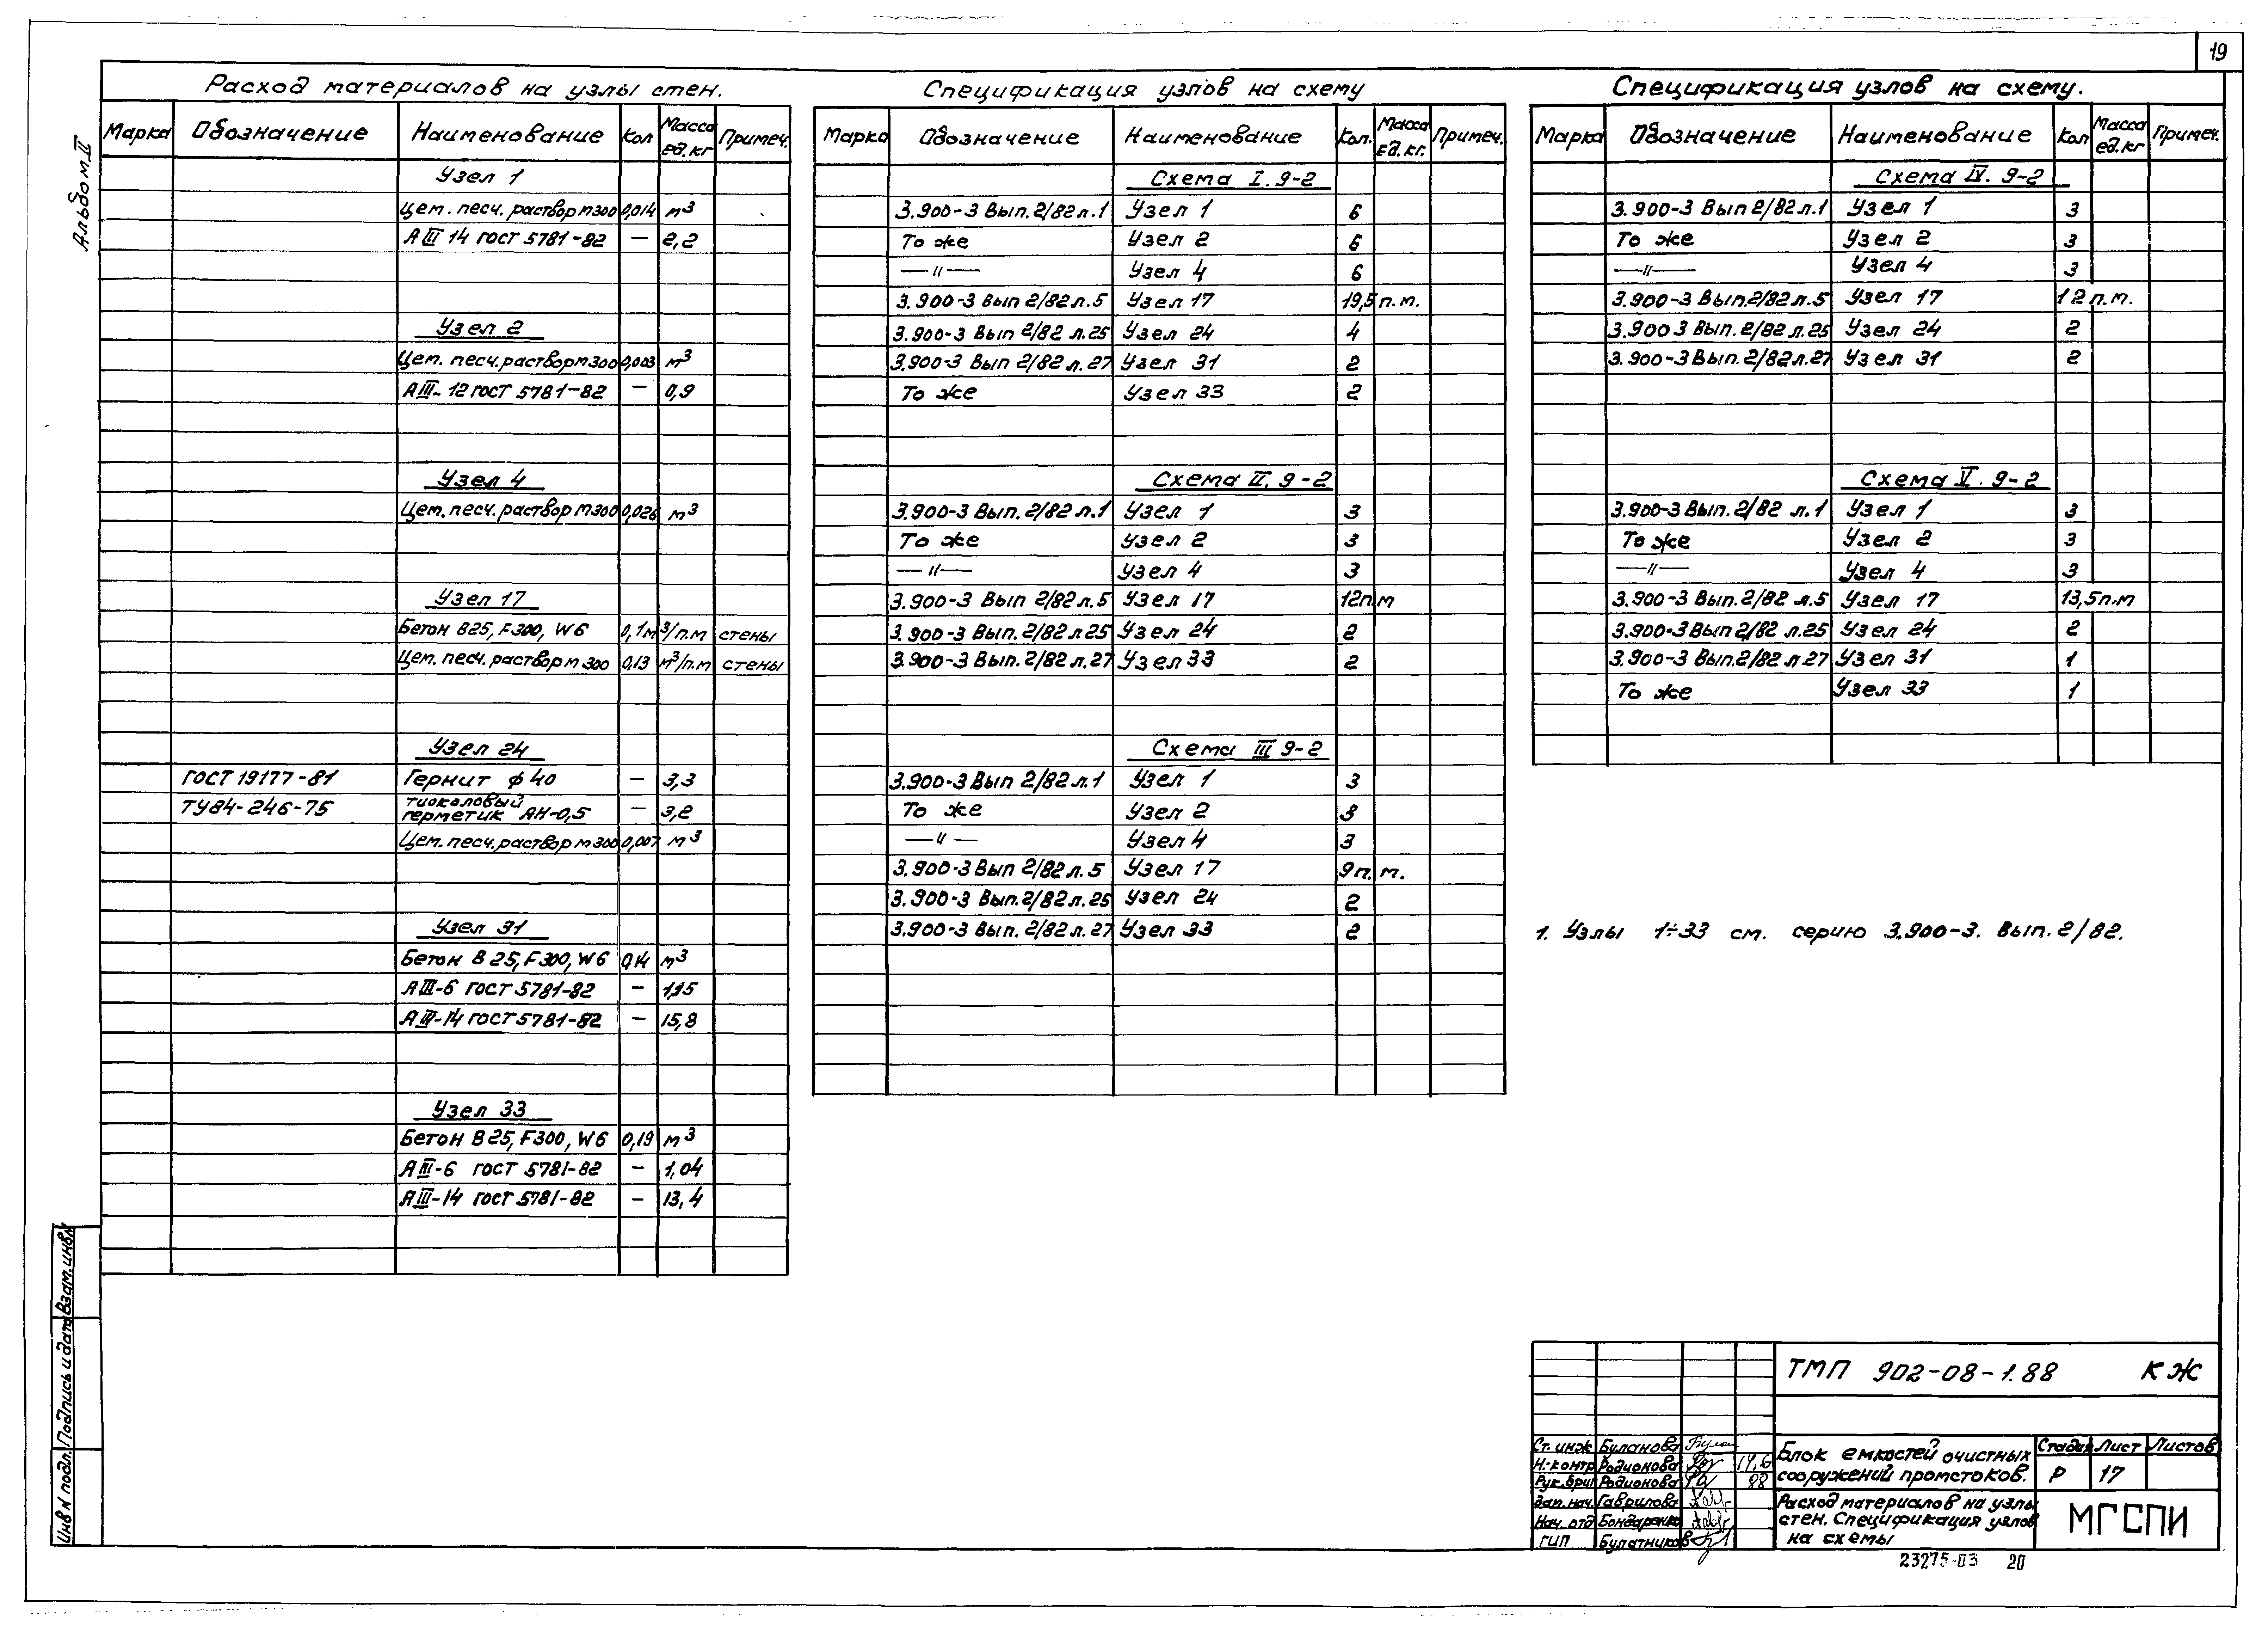 19
Альбом II
Расход материалов на узлы стен.
Марка Обозначение Наименование Кол Масса ед.кг Примеч.
Узел 1
Цем. песч. раствор м300 0,014 м³
А III 14 ГОСТ 5781-82 — 2,2
Узел 2
Цем. песч. раствор м300 0,003 м³
А III-12 ГОСТ 5781-82 — 0,9
Узел 4
Цем. песч. раствор м300 0,026 м³
Узел 17
Бетон В25, F300, W6 0,1 м³/п.м стены
Цем. песч. раствор м 300 0,13 м³/п.м стены
Узел 24
ГОСТ 19177-81 Гернит ф 40 — 3,3
ТУ84-246-75 тиоколовый герметик АН-0,5 — 3,2
Цем. песч. раствор м 300 0,007 м³
Узел 31
Бетон В 25, F300, W6 0,14 м³
А III-6 ГОСТ 5781-82 — 1,15
А III-14 ГОСТ 5781-82 — 15,8
Узел 33
Бетон В 25, F300, W6 0,19 м³
А III-6 ГОСТ 5781-82 — 1,04
А III-14 ГОСТ 5781-82 — 13,4
Спецификация узлов на схему
Марка Обозначение Наименование Кол. Масса ед.кг. Примеч.
Схема I. 9-2
3.900-3 Вып. 2/82 л.1 Узел 1 6
То же Узел 2 6
—"— Узел 4 6
3.900-3 Вып 2/82 л.5 Узел 17 19,5 п.м.
3.900-3 Вып 2/82 л.25 Узел 24 4
3.900-3 Вып 2/82 л.27 Узел 31 2
То же Узел 33 2
Схема II. 9-2
3.900-3 Вып. 2/82 л.1 Узел 1 3
То же Узел 2 3
—"— Узел 4 3
3.900-3 Вып 2/82 л.5 Узел 17 12п.м
3.900-3 Вып. 2/82 л 25 Узел 24 2
3.900-3 Вып. 2/82 л.27 Узел 33 2
Схема III 9-2
3.900-3 Вып 2/82 л.1 Узел 1 3
То же Узел 2 3
—"— Узел 4 3
3.900-3 Вып 2/82 л.5 Узел 17 9п. м.
3.900-3 Вып. 2/82 л.25 Узел 24 2
3.900-3 Вып. 2/82 л.27 Узел 33 2
Спецификация узлов на схему.
Марка Обозначение Наименование Кол Масса ед.кг Примеч.
Схема IV. 9-2
3.900-3 Вып 2/82 л.1 Узел 1 3
То же Узел 2 3
—"— Узел 4 3
3.900-3 Вып. 2/82 л.5 Узел 17 12 п.м.
3.900 3 Вып. 2/82 л.25 Узел 24 2
3.900-3 Вып. 2/82 л.27 Узел 31 2
Схема V. 9-2
3.900-3 Вып. 2/82 л.1 Узел 1 3
То же Узел 2 3
—"— Узел 4 3
3.900-3 Вып. 2/82 л.5 Узел 17 13,5п.м
3.900-3 Вып 2/82 л.25 Узел 24 2
3.900-3 Вып. 2/82 л 27 Узел 31 1
То же Узел 33 1
1. Узлы 1÷33 см. серию 3.900-3. Вып. 2/82.
ТМП 902-08-1.88 КЖ
Ст. инж Буланова
Н.-контр Родионова 14,6
Рук. бриг Родионова 88
Зап. нач. Гаврилова
Нач. отд Бондаренко
ГИП Булатников
Блок емкостей очистных сооружений промстоков.
Стадия Лист Листов
Р 17
Расход материалов на узлы
стен. Спецификация узлов
на схемы
МГСПИ
23275-03 20
Инв N подл. Подпись и дата Взам. инв.N